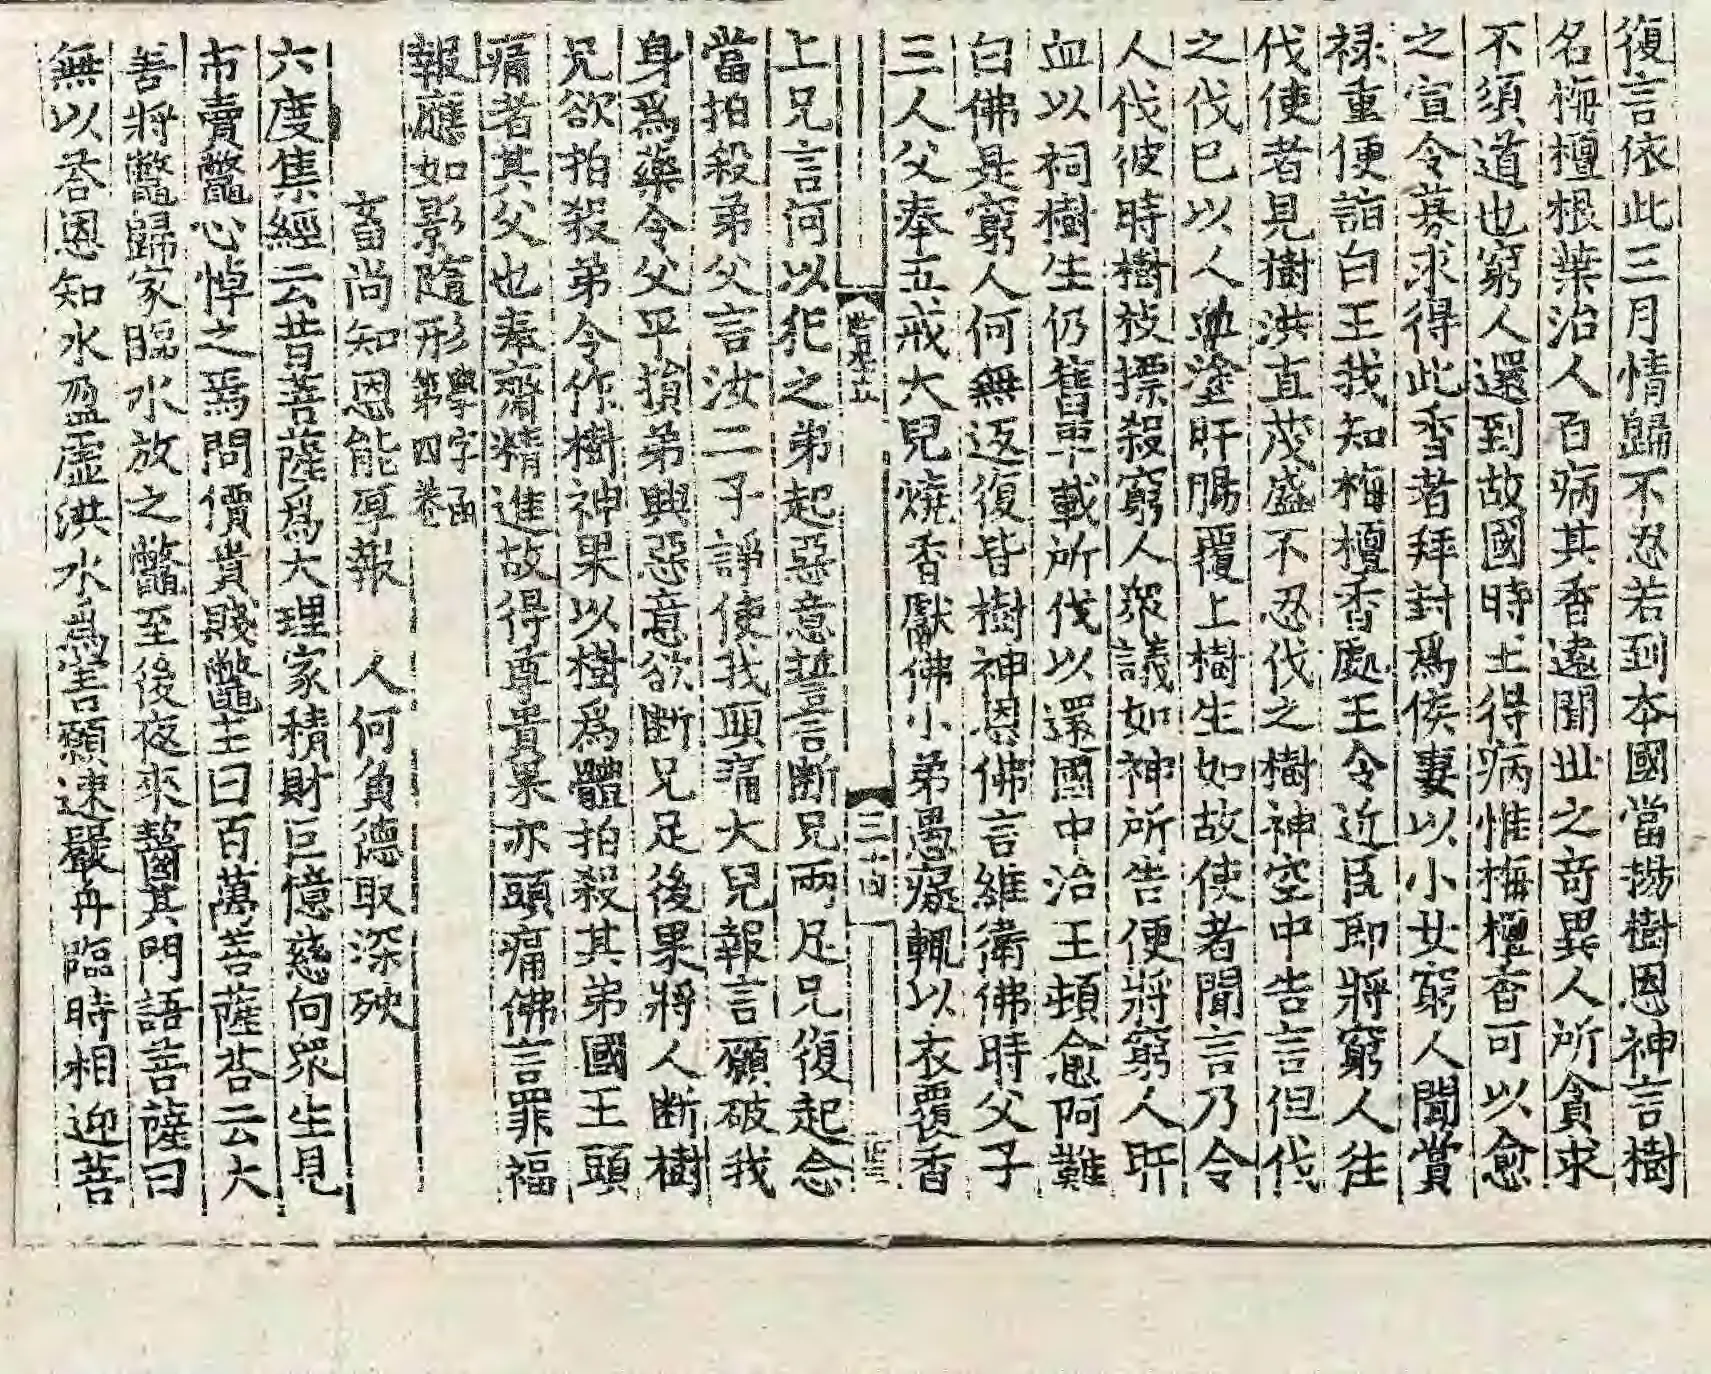 復言依此三月情歸不忍若到本國當揚樹恩神言樹
名栴檀根葉治人百病其香遠聞世之奇異人所貪求
不須道也窮人還到故國時王得病惟栴檀香可以愈
之宣令募求得此香者拜封爲侯妻以小女窮人聞賞
祿重便詣白王我知栴檀香處王令近臣即將窮人往
伐使者見樹洪直茂盛不忍伐之樹神空中告言但伐
之伐已以人血塗肝膓覆上樹生如故使者聞言乃令
人伐彼時樹枝摽殺窮人衆議如神所告便將窮人肝
血以祠樹生仍舊車載所伐以還國中治王頓愈阿難
白佛是窮人何無返復皆樹神恩佛言維衛佛時父子
三人父奉五戒大兒燒香獻佛小弟愚癡輒以衣覆香
上兄言何以犯之弟起惡意誓言断兄兩足兄復起念
當拍殺弟父言汝二子諍使我頭痛大兒報言願破我
身爲藥令父平損弟興惡意欲断兄足後果將人断樹
兄欲拍殺弟令作樹神果以樹爲體拍殺其弟國王頭
痛者其父也奉齋精進故得尊貴果亦頭痛佛言罪福
報應如影隨形學字函第四卷
畜尚知恩能厚報 人何負德取深殃
六度集經云昔菩薩爲大理家積財巨億慈向衆生見
市賣鼈心悼之焉問價貴賤鼈主曰百萬菩薩荅云大
善將鼈歸家臨水放之鼈至後夜來齧其門語菩薩曰
無以荅恩知水盈虛洪水爲害願速嚴舟臨時相迎菩